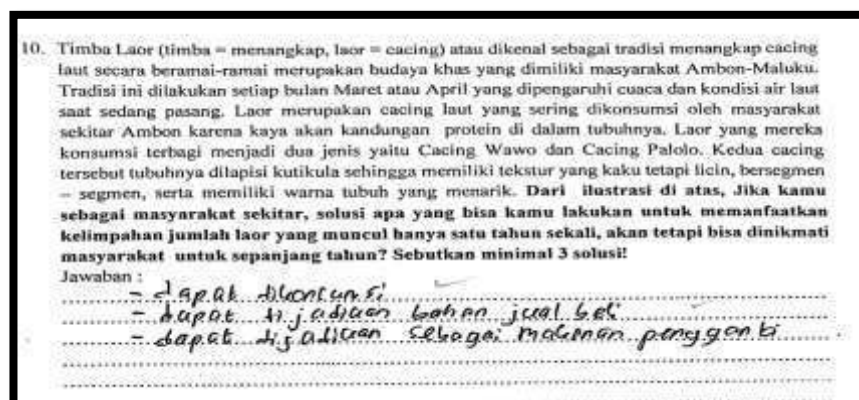 10. Timba Laor (timba = menangkap, laor = cacing) atau dikenal sebagai tradisi menangkap cacing
laut secara beramai-ramai merupakan budaya khas yang dimiliki masyarakat Ambon-Maluku.
Tradisi ini dilakukan setiap bulan Maret atau April yang dipengaruhi cuaca dan kondisi air laut
saat sedang pasang. Laor merupakan cacing laut yang sering dikonsumsi oleh masyarakat
sekitar Ambon karena kaya akan kandungan protein di dalam tubuhnya. Laor yang mereka
konsumsi terbagi menjadi dua jenis yaitu Cacing Wawo dan Cacing Palolo. Kedua cacing
tersebut tubuhnya dilapisi kutikula sehingga memiliki tekstur yang kaku tetapi licin, bersegmen
– segmen, serta memiliki warna tubuh yang menarik. Dari ilustrasi di atas, Jika kamu
sebagai masyarakat sekitar, solusi apa yang bisa kamu lakukan untuk memanfaatkan
kelimpahan jumlah laor yang muncul hanya satu tahun sekali, akan tetapi bisa dinikmati
masyarakat untuk sepanjang tahun? Sebutkan minimal 3 solusi!
Jawaban :
- dapat dikonsumsi
- dapat di jadikan bahan jual beli
- dapat dijadikan sebagai makanan pengganti